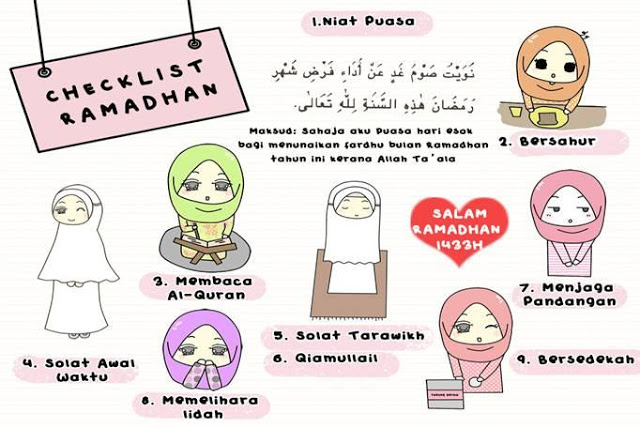 CHECKLIST
RAMADHAN
1.Niat Puasa
نَوَيْتُ صَوْمَ غَدٍ عَنْ أَدَاءِ فَرْضِ شَهْرِ
رَمَضَانَ هٰذِهِ السَّنَةِ لِلّٰهِ تَعَالٰى.
Maksud: Sahaja aku Puasa hari esok
bagi menunaikan fardhu bulan Ramadhan
tahun ini kerana Allah Ta'ala
2. Bersahur
3. Membaca
Al-Quran
4. Solat Awal
Waktu
5. Solat Tarawikh
6. Qiamullail
SALAM
RAMADHAN
1433H
7. Menjaga
Pandangan
8. Memelihara
lidah
9. Bersedekah